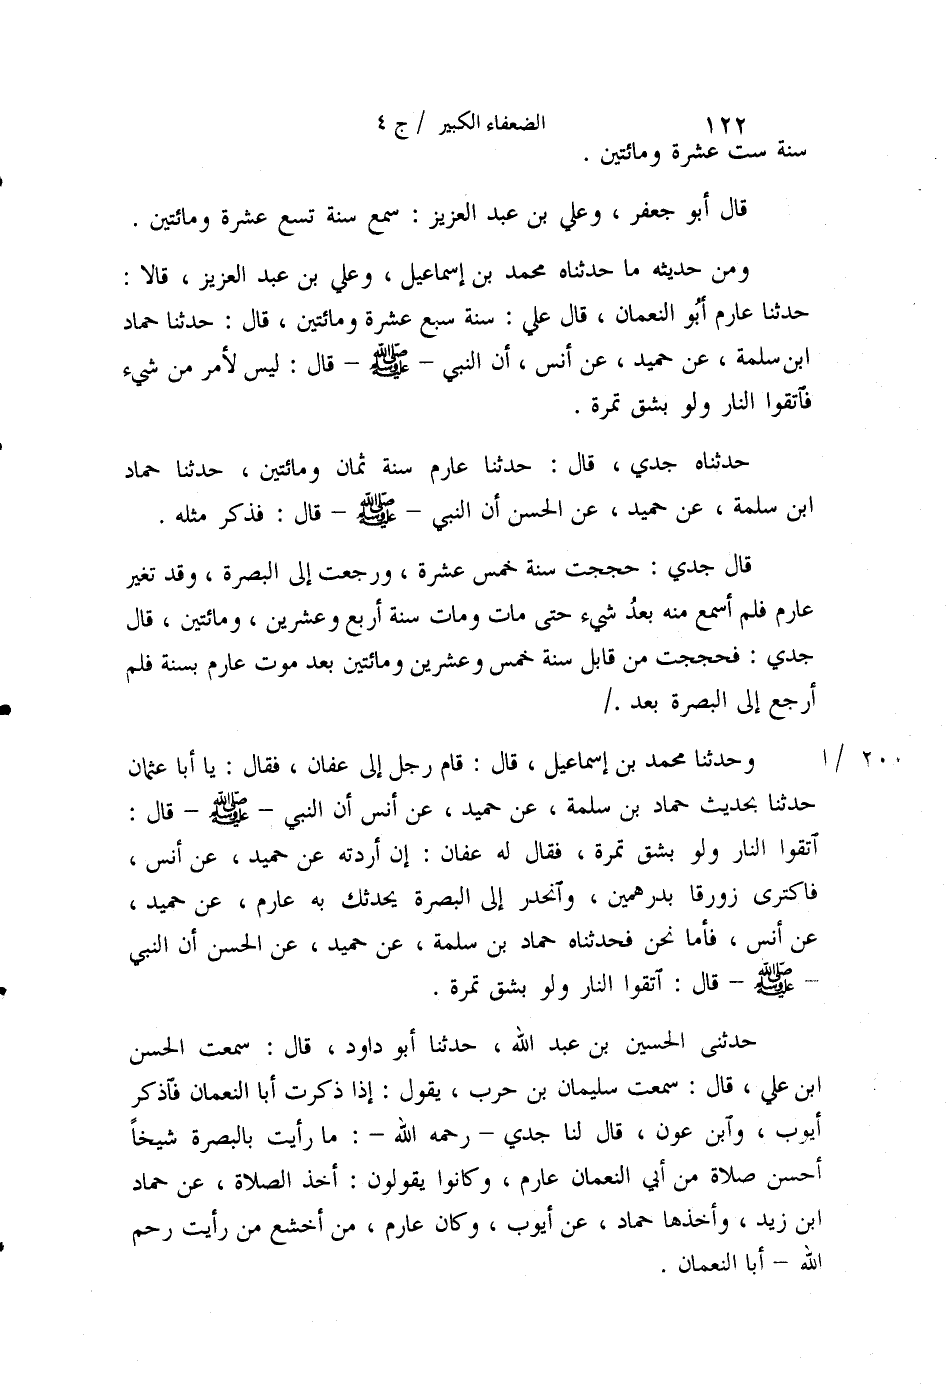 ١٢٢ الضعفاء الكبير / ج ٤
سنة ست عشرة ومائتين .
قال أبو جعفر ، وعلي بن عبد العزيز : سمع سنة تسع عشرة ومائتين .
ومن حديثه ما حدثناه محمد بن إسماعيل ، وعلي بن عبد العزيز ، قالا :
حدثنا عارم أبُو النعمان ، قال علي : سنة سبع عشرة ومائتين ، قال : حدثنا حماد
ابن سلمة ، عن حميد ، عن أنس ، أن النبي – ﷺ – قال : ليس لأمر من شيء
فآتقوا النار ولو بشق تمرة .
حدثناه جدي ، قال : حدثنا عارم سنة ثمان ومائتين ، حدثنا حماد
ابن سلمة ، عن حميد ، عن الحسن أن النبي – ﷺ – قال : فذكر مثله .
قال جدي : حججت سنة خمس عشرة ، ورجعت إلى البصرة ، وقد تغير
عارم فلم أسمع منه بعدُ شيء حتى مات ومات سنة أربع وعشرين ، ومائتين ، قال
جدي : فحججت من قابل سنة خمس وعشرين ومائتين بعد موت عارم بسنة فلم
أرجع إلى البصرة بعد ./
٢٠٠ / ا وحدثنا محمد بن إسماعيل ، قال : قام رجل إلى عفان ، فقال : يا أبا عثمان
حدثنا بحديث حماد بن سلمة ، عن حميد ، عن أنس أن النبي – ﷺ – قال :
آتقوا النار ولو بشق تمرة ، فقال له عفان : إن أردته عن حميد ، عن أنس ،
فاكترى زورقا بدرهمين ، وآنحدر إلى البصرة يحدثك به عارم ، عن حميد ،
عن أنس ، فأما نحن فحدثناه حماد بن سلمة ، عن حميد ، عن الحسن أن النبي
– ﷺ – قال : آتقوا النار ولو بشق تمرة .
حدثنى الحسين بن عبد الله ، حدثنا أبو داود ، قال : سمعت الحسن
ابن علي ، قال : سمعت سليمان بن حرب ، يقول : إذا ذكرت أبا النعمان فآذكر
أيوب ، وآبن عون ، قال لنا جدي – رحمه الله – : ما رأيت بالبصرة شيخاً
أحسن صلاة من أبي النعمان عارم ، وكانوا يقولون : أخذ الصلاة ، عن حماد
ابن زيد ، وأخذها حماد ، عن أيوب ، وكان عارم ، من أخشع من رأيت رحم
الله – أبا النعمان .